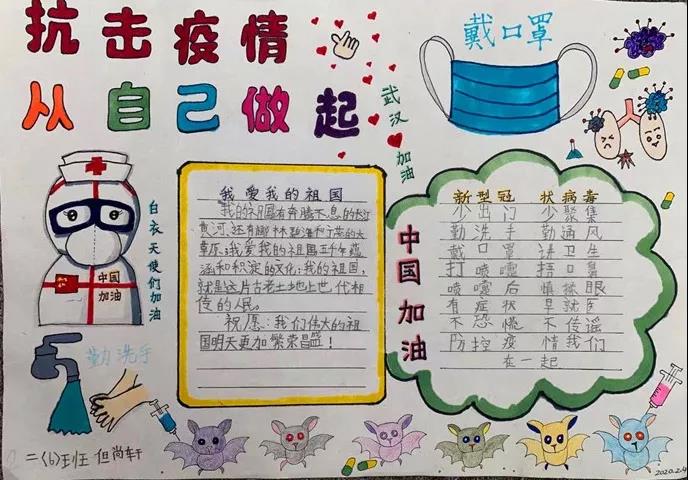 抗击疫情
从自己做起
戴口罩
武汉加油
白衣天使们加油
中国
加油
勤洗手
我爱我的祖国
我的祖国有奔腾不息的长江
黄河,还有
草原。我爱我的祖国五千年蕴
涵和积淀的文化;我的祖国,
就是这片古老土地上世代相
传的人民。
祝愿:我们伟大的祖
国明天更加繁荣昌盛!
中国加油
新型冠 状病毒
少出门 少聚集
勤洗手 勤通风
戴口罩 讲卫生
打喷嚏 捂口鼻
喷嚏后 慎揉眼
有症状 早就医
不恐慌 不传谣
防控疫 情我们
在一起
二(6)班 但尚轩
2020.2.4